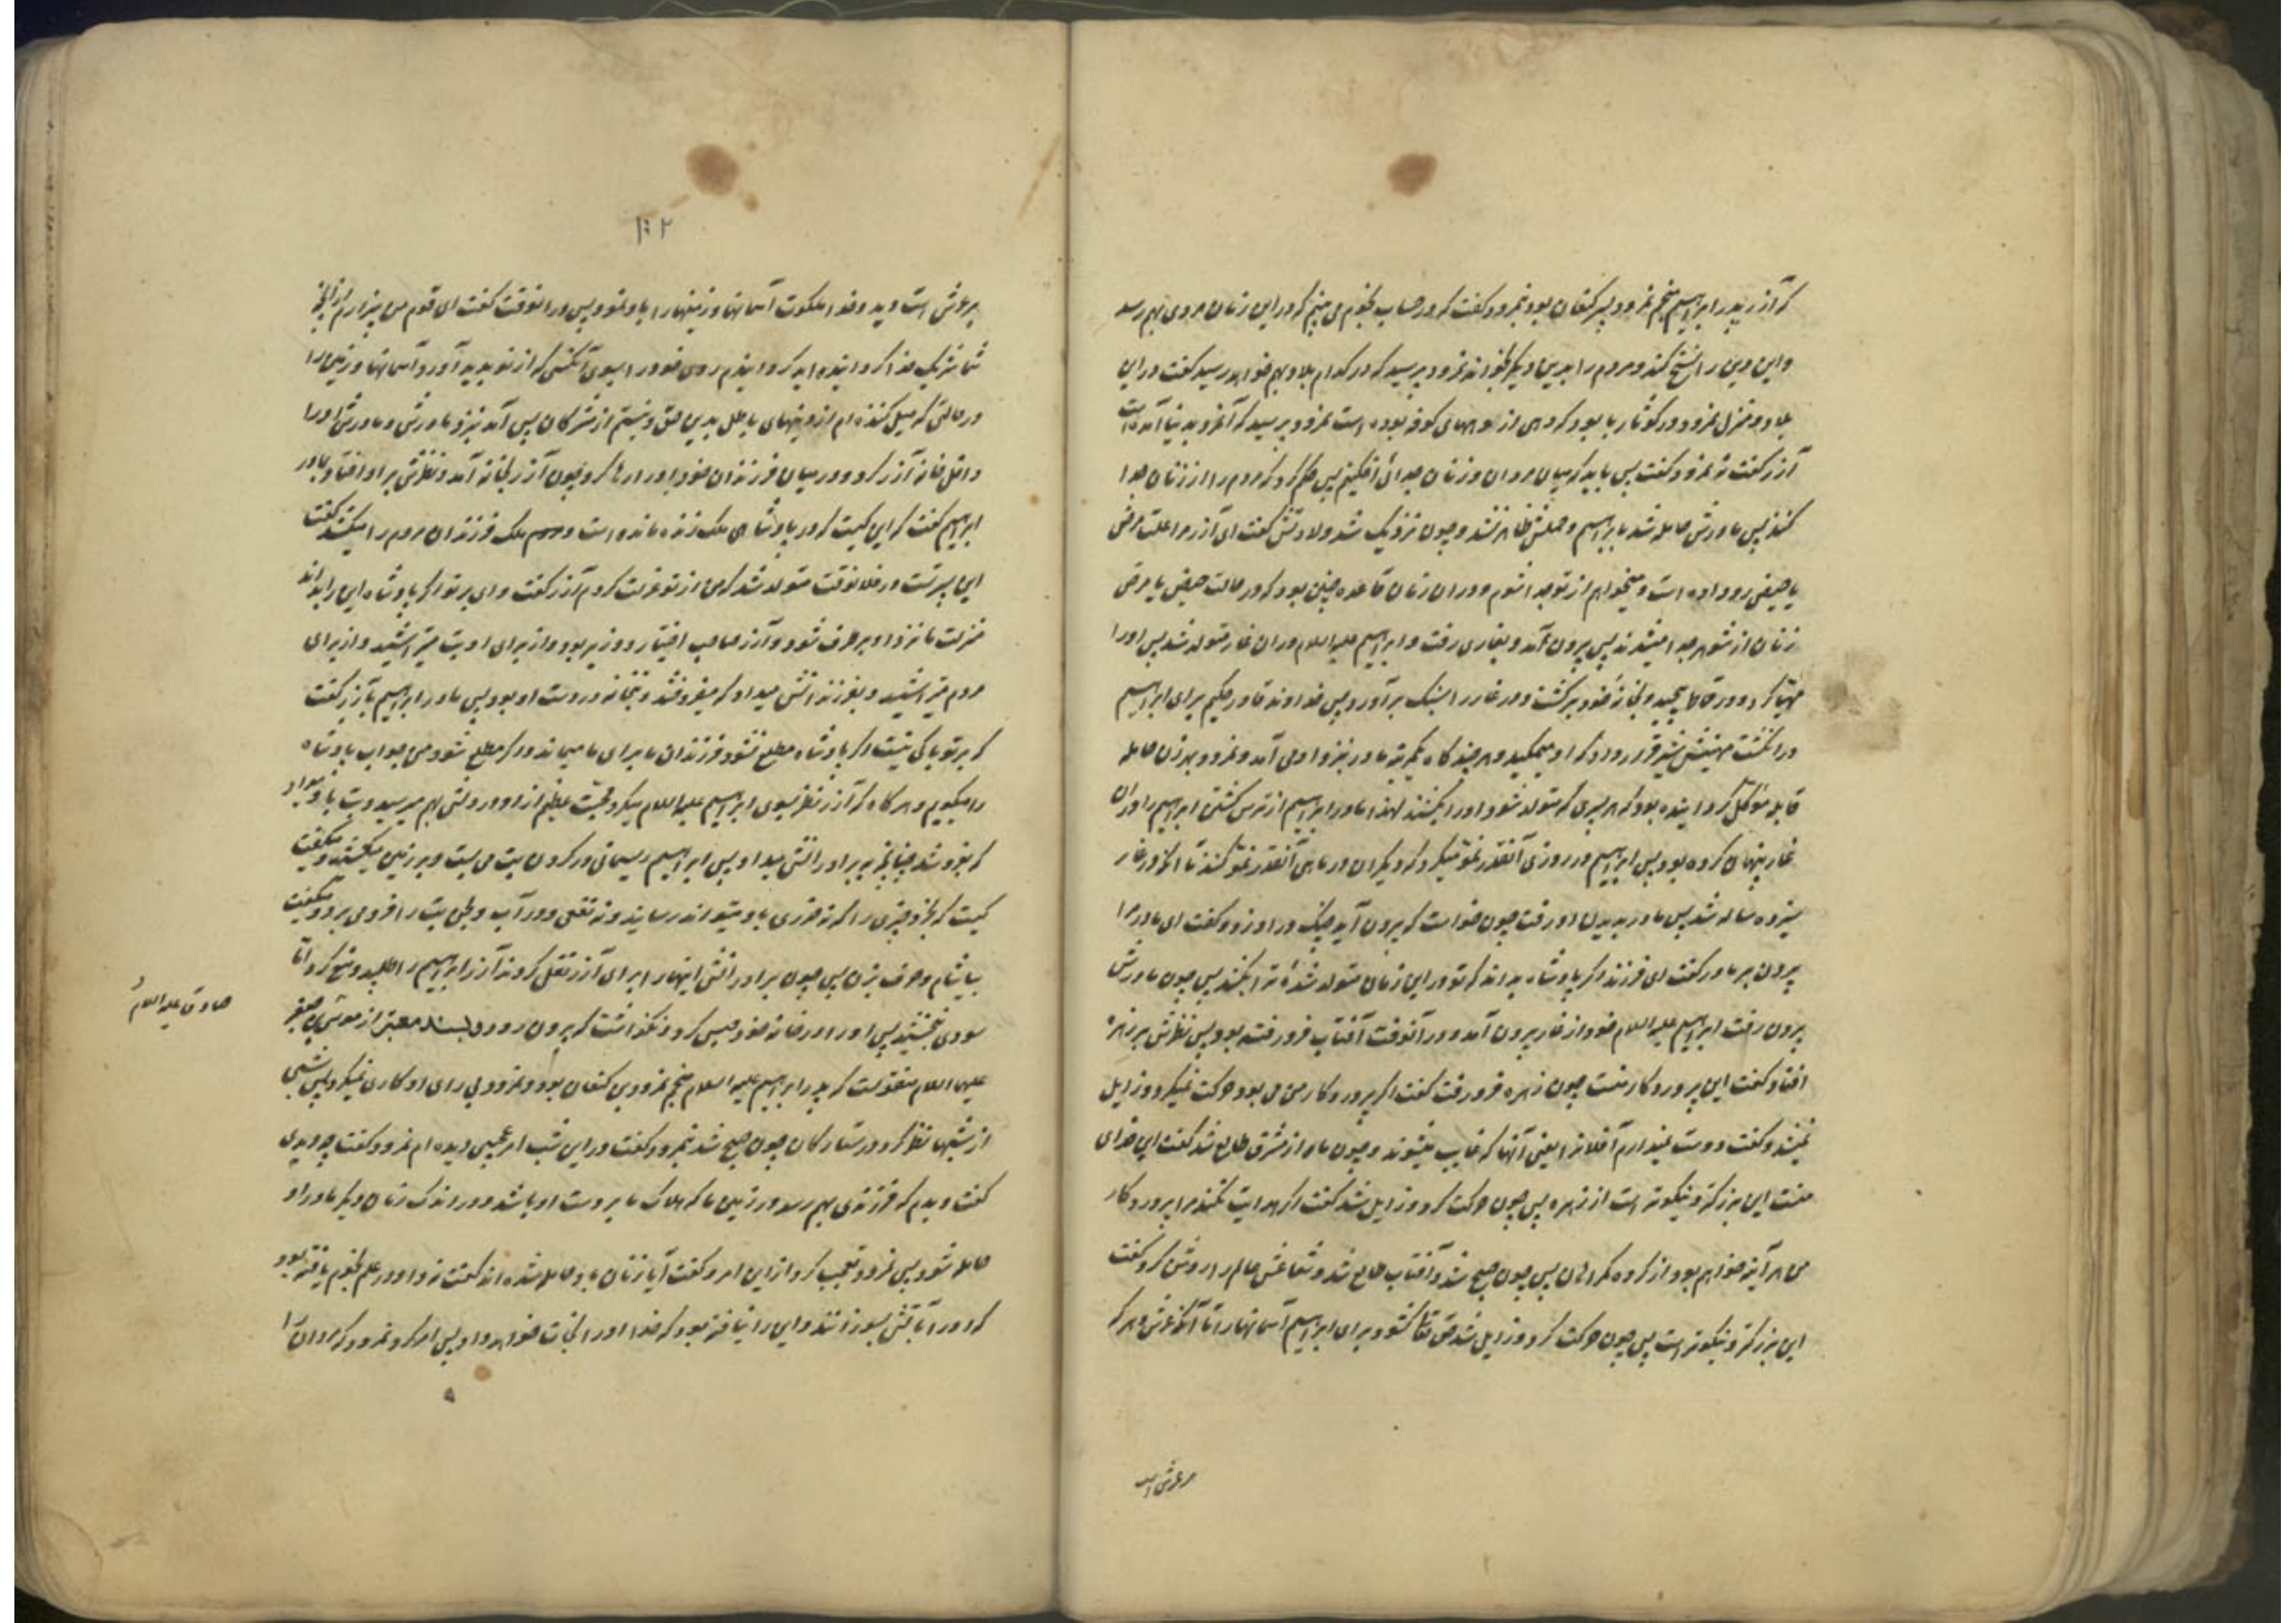 که آزر پدر ابراهیم منجم نمرود پسر کنعان بود بنمرود گفت که در حساب نجوم می بینم که در این زمان مردی بهم رسد
و این دین را نسخ کند و مردم را بدین دیگر بخواند نمرود پرسید که در کدام بلاد بهم خواهد رسید گفت در این
بلاد و منزل نمرود در کوثاربا بود که دهی از دههای کوفه بوده است نمرود پرسید که آنمرد بدنیا آمده است
آزر گفت نه نمرود گفت پس باید که میان مردان و زنان جدائی افکنیم پس حکم کرد که مردم را از زنان جدا
کنند پس مادرش حامله شد بابراهیم و حملش ظاهر نشد و چون نزدیک شد ولادتش گفت ای آزر مرا علت مرض
یا حیض رو داده است و میخواهم از تو جدا شوم و در ان زمان قاعده چنین بود که در حالت حیض یا مرض
زنان از شوهر جدا میشدند پس بیرون آمد و بغاری رفت و ابراهیم علیه السلام در ان غار متولد شد پس او را
مهیا کرد و در قماط پیچید و بخانه خود برگشت و در غار را بسنگ برآورد پس خداوند قادر حکیم برای ابراهیم
در انگشت مهینش شیر قرار داد که او میمکید و هر چند گاه یکمرتبه مادر بنزد او می آمد و نمرود بهر زن حامله
قابله موکل گردانیده بود که هر پسری که متولد شود او را بکشند لهذا مادر ابراهیم از ترس کشتن ابراهیم را در ان
غار پنهان کرده بود پس ابراهیم در روزی آنقدر نمو میکرد که دیگران در ماهی آنقدر نمو کنند تا انکه در غار
سیزده ساله شد پس مادر بدیدن او رفت چون خواست که بیرون آید چنگ در او زد و گفت ای مادر مرا
بیرون بر مادر گفت ای فرزند اگر پادشاه بداند که تو در این زمان متولد شدهٔ ترا بکشد پس چون مادرش
بیرون رفت ابراهیم علیه السلام خود از غار بیرون آمد و در آنوقت آفتاب فرو رفته بود پس نظرش بر زهره
افتاد گفت این پروردگار منست چون زهره فرو رفت گفت اگر پروردگار من می بود حرکت نمیکرد و زایل
نمیشد و گفت دوست نمیدارم آفلانرا یعنی آنها که غایب میشوند و چون ماه از مشرق طالع شد گفت این خدای
منست این بزرگتر و نیکوتر است از زهره پس چون حرکت کرد و زایل شد گفت اگر هدایت نکند مرا پروردگار
من هر آینه خواهم بود از گروه گمراهان پس چون صبح شد و آفتاب طالع شد و شعاعش عالم را روشن کرد گفت
این بزرگتر و نیکوتر است پس چون حرکت کرد و زایل شد حق تعالی گشود برای ابراهیم آسمانها را تا آنکه عرش و هر که
بر عرش است
۱۰۲
بر عرش است دید و خدا ملکوت آسمانها و زمینها را باو نمود پس در انوقت گفت ای قوم من بیزارم از آنچه
شما شریک خدا گردانیده اید گردانیدم روی خود را بسوی آنکسی که از نو پدید آورد آسمانها و زمین را
در حالتی که میل کننده ام از دینهای باطل بدین حق و نیستم از مشرکان پس آمد بنزد مادرش و مادرش او را
داخل خانه آزر کرد و در میان فرزندان خود او را رها کرد چون آزر بخانه آمد و نظرش بر او افتاد بمادر
ابراهیم گفت که این کیست که در پادشاهی ملک زنده مانده است و ملک فرزندان مردم را میکشد گفت
این پسر تست در فلانوقت متولد شد که من از تو عزلت کردم آزر گفت وای بر تو اگر پادشاه این را بداند
منزلت ما نزد او برطرف شود و آزر صاحب اختیار و وزیر بود و از برای او بت میتراشید و از برای
مردم میتراشید و بفرزندانش میداد که میفروختند و بتخانه در دست او بود پس مادر ابراهیم بآزر گفت
که بر تو باکی نیست اگر پادشاه مطلع نشود فرزندان ما برای ما میماند و اگر مطلع شود من جواب پادشاه
را میگویم و هر گاه که آزر نظر بسوی ابراهیم علیه السلام میکرد محبت عظیم از او در دلش بهم میرسید و بت باو میداد
که بفروشد چنانچه ببرادرانش میداد پس ابراهیم ریسمانی در گردن بت می بست و بر زمین میکشید و میگفت
کیست که بخرد چیزی را که نه ضرری باو میتواند رسانید و نه نفعی و در آب و لجن بت را فرو می برد و میگفت
بیاشام و حرف بزن پس چون برادرانش اینها را برای آزر نقل کردند آزر ابراهیم را طلبید و منع کرد امّا
سودی نبخشید پس او را در خانه خود حبس کرد و نگذاشت که بیرون رود و بسند معتبر از حضرت
صادق علیه السلام
علیه السلام منقولست که پدر ابراهیم علیه السلام منجم نمرود بن کنعان بود و نمرود بی رای او کاری نمیکرد پس شبی
از شبها نظر کرد در ستارگان چون صبح شد بنمرود گفت در این شب امر عجیبی دیده ام نمرود گفت چه دیدی
گفت دیدم که فرزندی بهم رسد در زمین ما که هلاک ما بر دست او باشد و در اندک زمان دیگر مادر او
حامله شود پس نمرود تعجب کرد از این امر و گفت آیا زنان باو حامله شده اند گفت نه و او در علم نجوم یافته بود
که او را بآتش بسوزانند و این را نیافته بود که خدا او را نجات خواهد داد پس امر کرد نمرود که مردان را